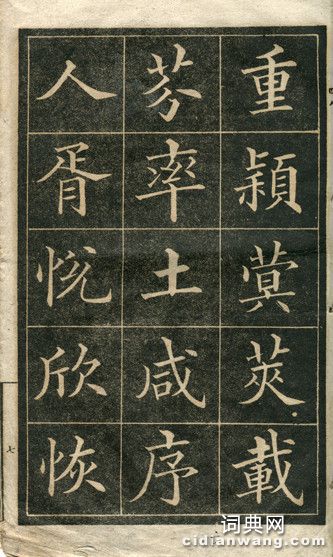 重穎蓂莢載
芬率土咸序
人胥悅欣恢
七
词典网
cidianwang.com